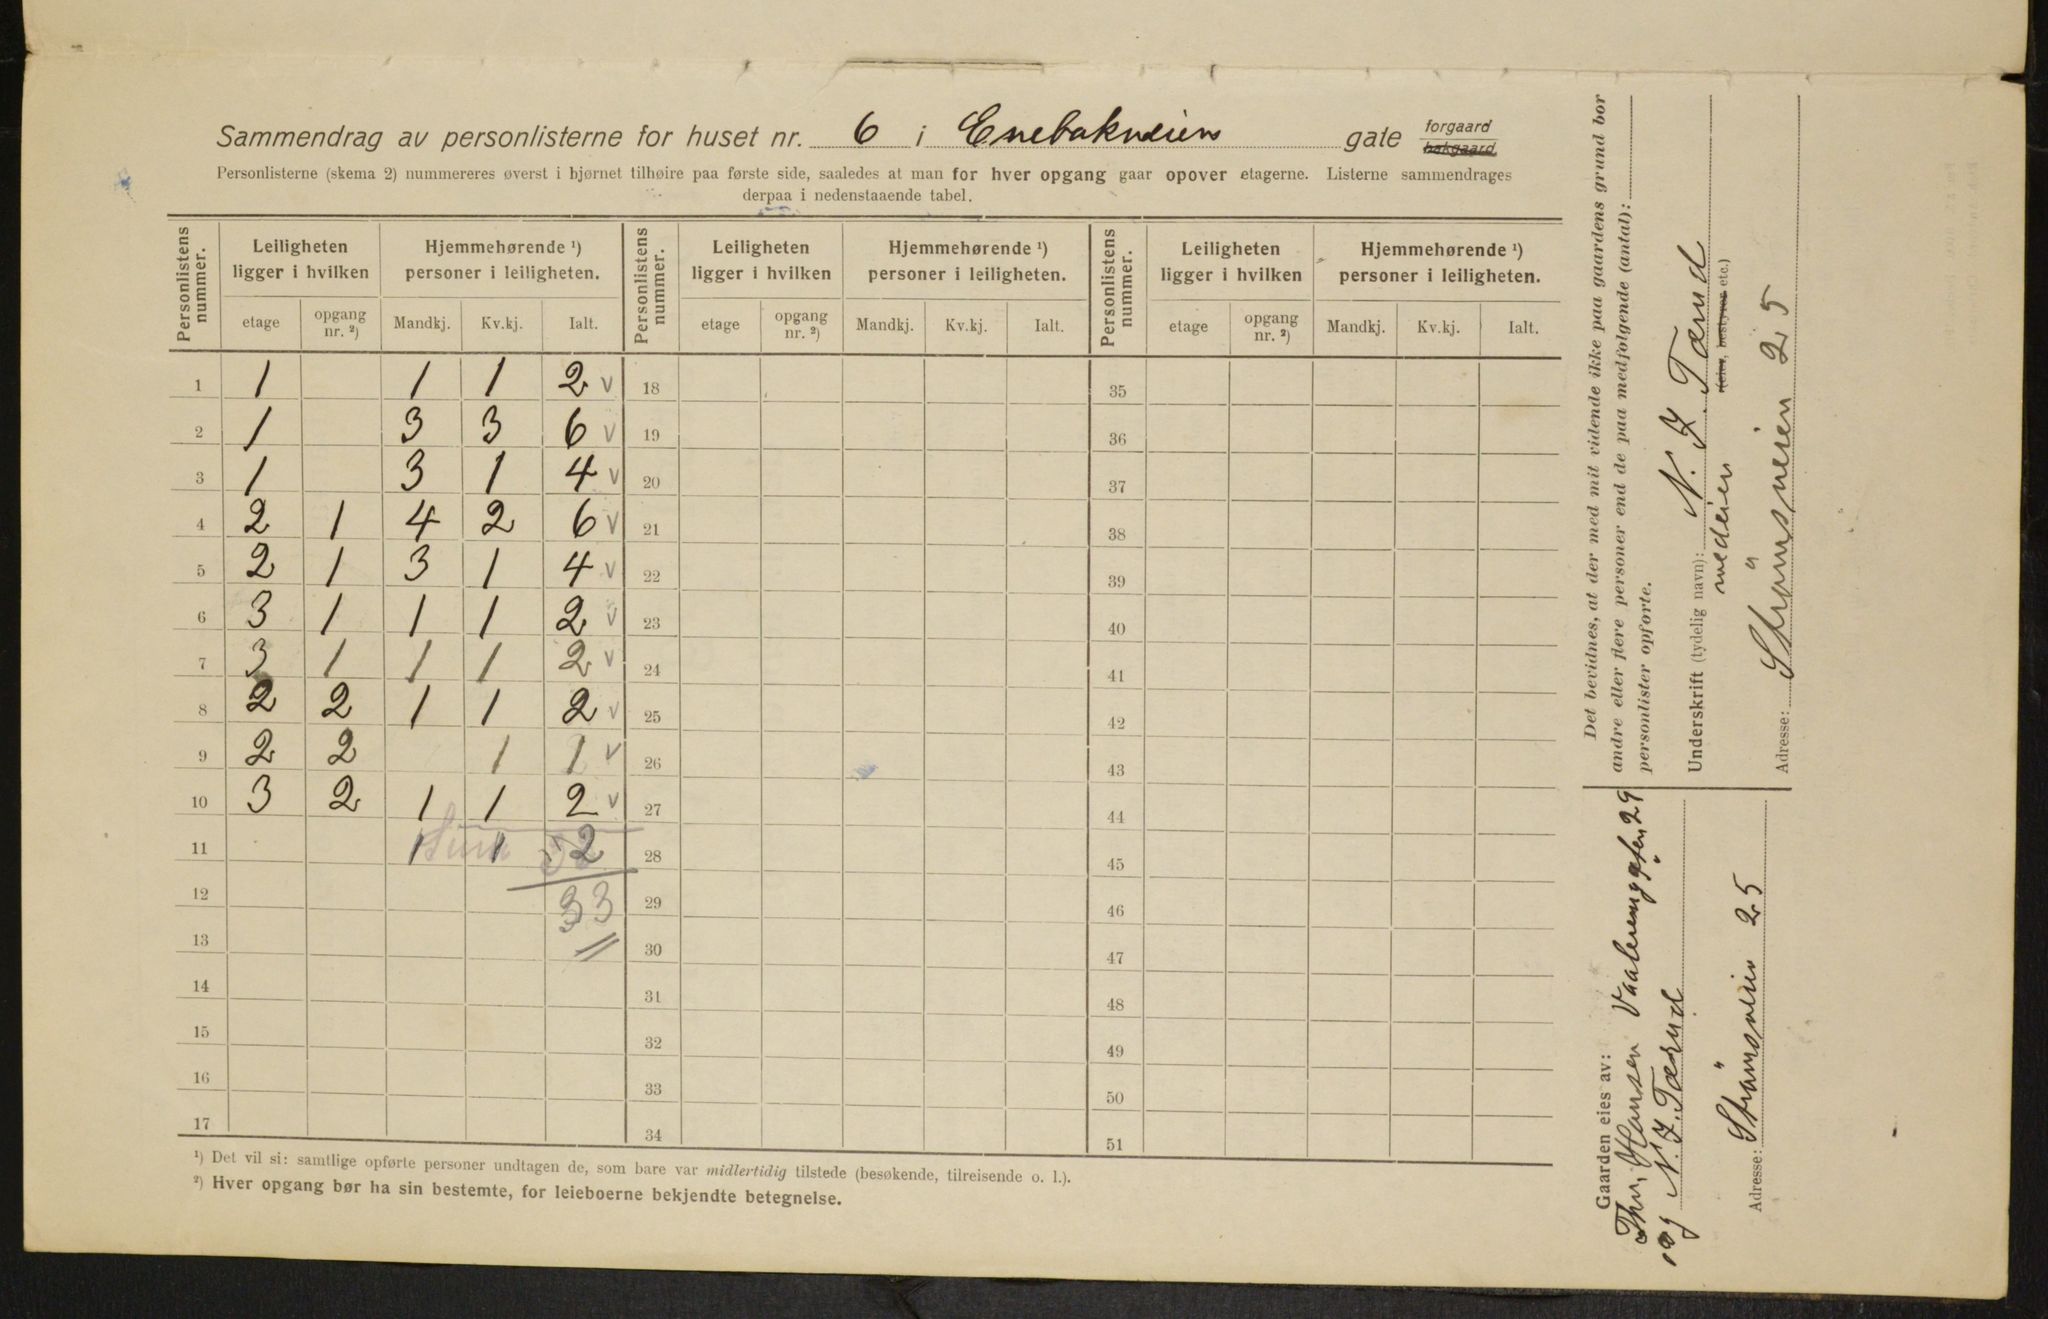 Sammendrag av personlisterne for huset nr. 6 i Enebakveien gate forgaard bakgaard
Personlisterne (skema 2) nummereres øverst i hjørnet tilhøire paa første side, saaledes at man for hver opgang gaar opover etagerne. Listerne sammendrages
derpaa i nedenstaaende tabel.
Personlistens nummer. Leiligheten ligger i hvilken Hjemmehørende ¹) personer i leiligheten. Personlistens nummer. Leiligheten ligger i hvilken Hjemmehørende ¹) personer i leiligheten. Personlistens nummer. Leiligheten ligger i hvilken Hjemmehørende ¹) personer i leiligheten.
etage opgang nr. ²) Mandkj. Kv.kj. Ialt. etage opgang nr. ²) Mandkj. Kv.kj. Ialt. etage opgang nr. ²) Mandkj. Kv.kj. Ialt.
1 1 1 1 2 v 18 35
2 1 3 3 6 v 19 36
3 1 3 1 4 v 20 37
4 2 1 4 2 6 v 21 38
5 2 1 3 1 4 v 22 39
6 3 1 1 1 2 v 23 40
7 3 1 1 1 2 v 24 41
8 2 2 1 1 2 v 25 42
9 2 2 1 1 v 26 43
10 3 2 1 1 2 v 27 44
11 1 1 2 28 45
12 33 29 46
13 30 47
14 31 48
15 32 49
16 33 50
17 34 51
¹) Det vil si: samtlige opførte personer undtagen de, som bare var midlertidig tilstede (besøkende, tilreisende o. l.).
²) Hver opgang bør ha sin bestemte, for leieboerne bekjendte betegnelse.
Det bevidnes, at der med mit vidende ikke paa gaardens grund bor
andre eller flere personer end de paa medfølgende (antal):
personlister opførte.
Underskrift (tydelig navn): N. J. Tærud
medeier (eier, bestyrer etc.)
Adresse: Strømsveien 25
Gaarden eies av:
Thv. Hansen Vaalerenggaten 29
og N. J. Tærud
Adresse: Strømsveien 25